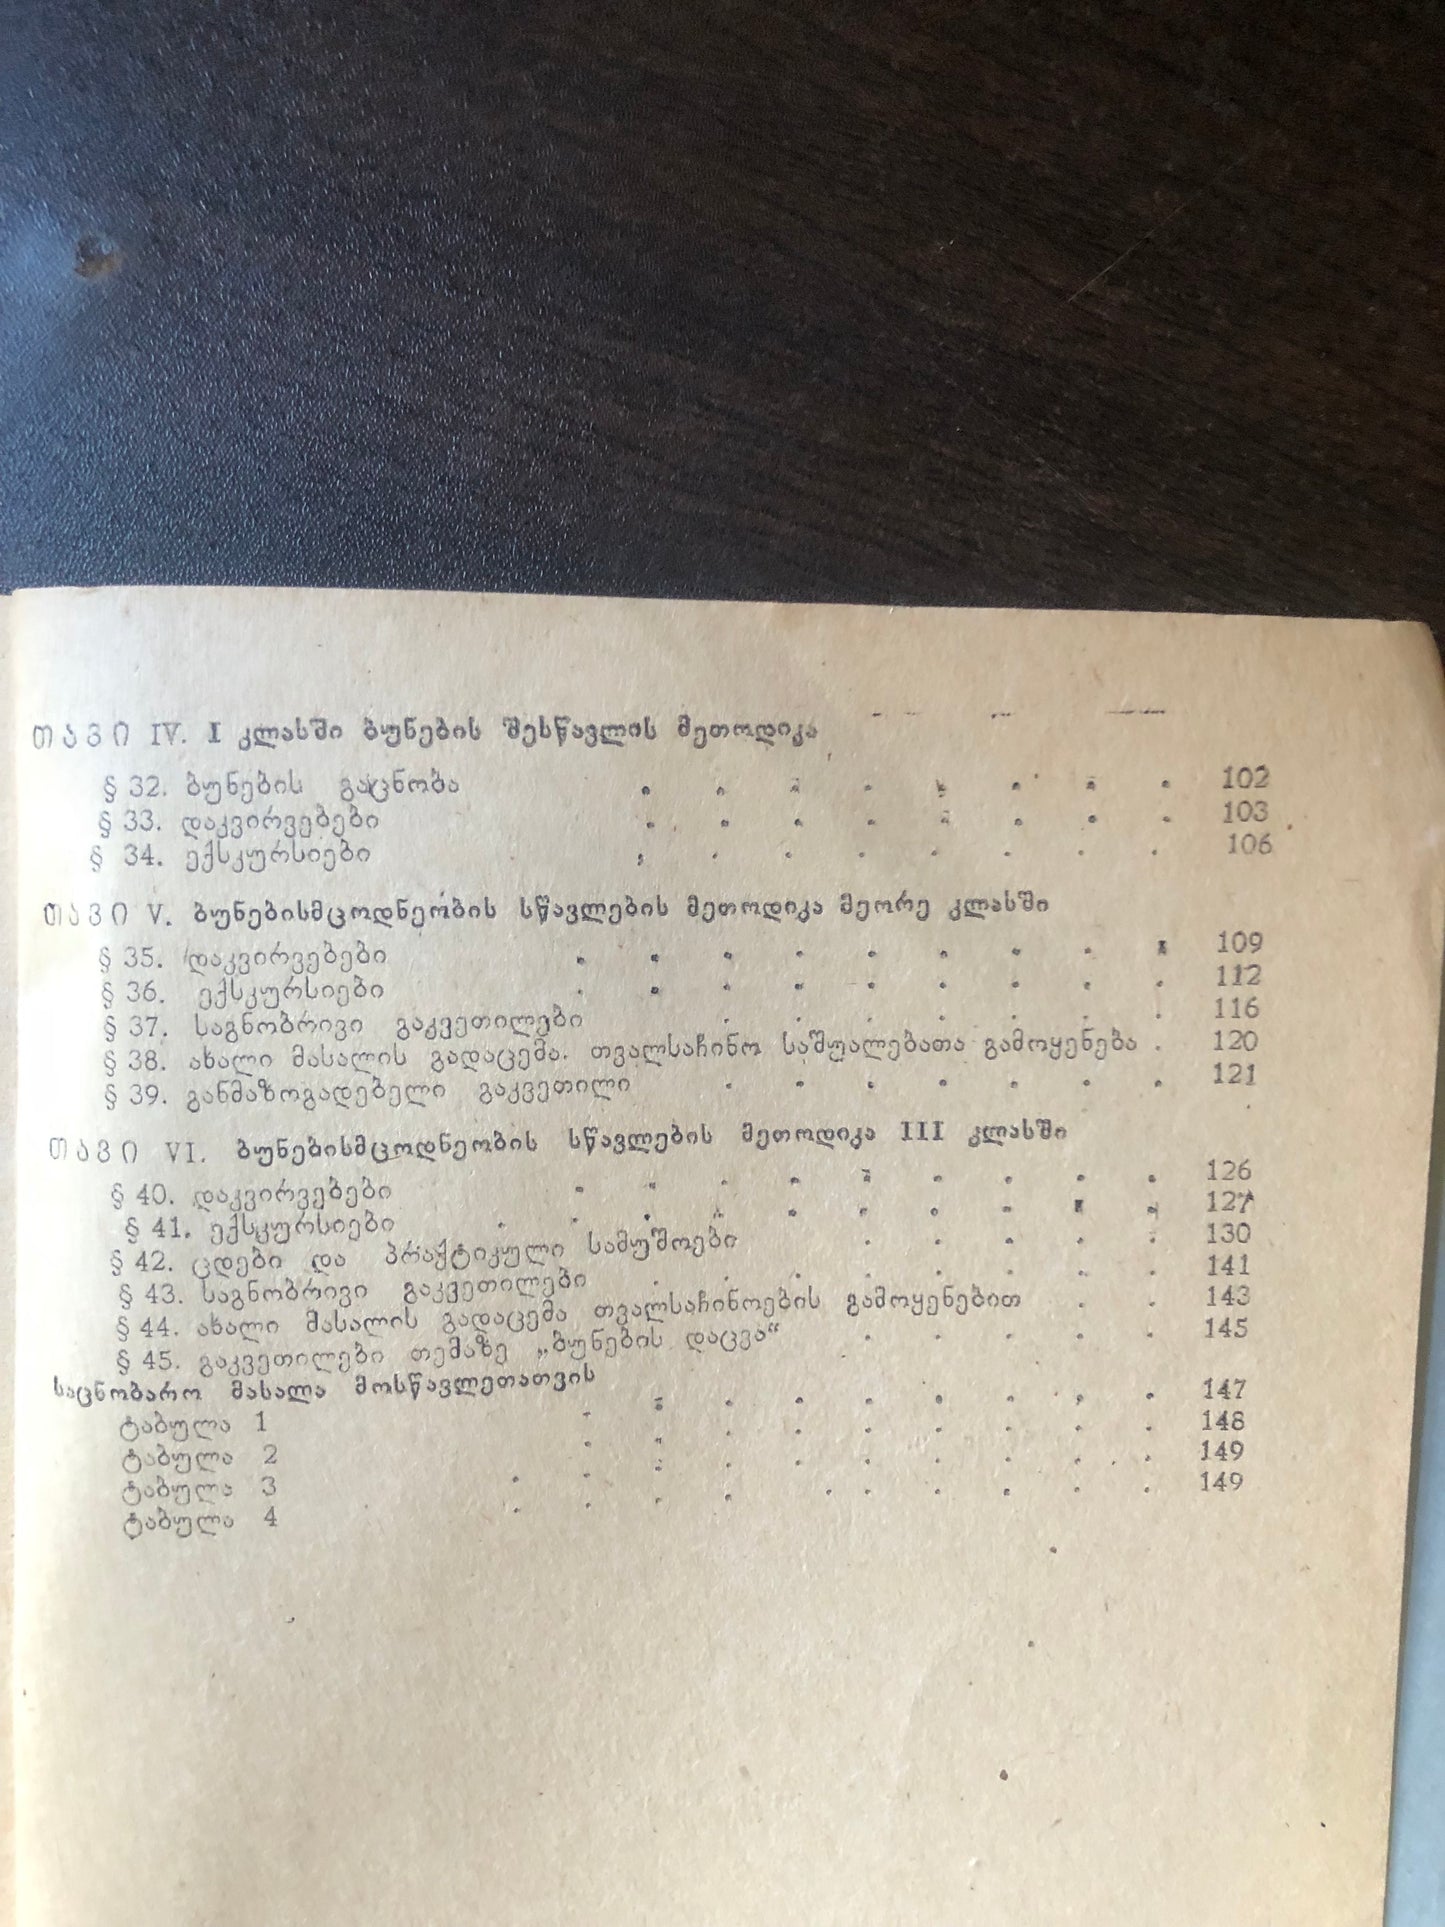 თავი IV. I კლასში ბუნების შესწავლის მეთოდიკა
§ 32. ბუნების გაცნობა . . . . . . . . 102
§ 33. დაკვირვებები . . . . . . . . 103
§ 34. ექსკურსიები . . . . . . . . 106
თავი V. ბუნებისმცოდნეობის სწავლების მეთოდიკა მეორე კლასში
§ 35. დაკვირვებები . . . . . . . . . 109
§ 36. ექსკურსიები . . . . . . . . . 112
§ 37. საგნობრივი გაკვეთილები . . . . . . . 116
§ 38. ახალი მასალის გადაცემა. თვალსაჩინო საშუალებათა გამოყენება . 120
§ 39. განმაზოგადებელი გაკვეთილი . . . . . . . 121
თავი VI. ბუნებისმცოდნეობის სწავლების მეთოდიკა III კლასში
§ 40. დაკვირვებები . . . . . . . . . 126
§ 41. ექსკურსიები . . . . . . . . . . 127
§ 42. ცდები და პრაქტიკული სამუშოები . . . . . 130
§ 43. საგნობრივი გაკვეთილები . . . . . . . . 141
§ 44. ახალი მასალის გადაცემა თვალსაჩინოების გამოყენებით . . 143
§ 45. გაკვეთილები თემაზე „ბუნების დაცვა“ . . . . . 145
საცნობარო მასალა მოსწავლეთათვის
ტაბულა 1 . . . . . . . . . 147
ტაბულა 2 . . . . . . . . . 148
ტაბულა 3 . . . . . . . . . . 149
ტაბულა 4 . . . . . . . . . . 149